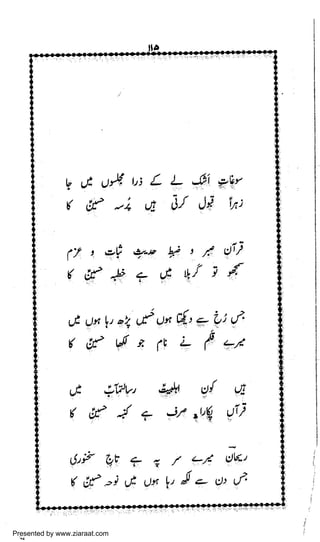 ۱۱۵
سوغاتِ اشک لے کے ذرا مجلسوں میں جا
زہراؑ قبول کرتی ہیں پُرسہ حسینؑ کا
قرآنِ صبر و ضبط و حدیثِ ثبات و عزم
سمجھو تو کربلا میں ہے خطبہ حسینؑ کا
جس رُخ سے دیکھتا ہوں حَسیں پڑھ رہا ہوں میں
میرے قلم نے نام جو لکھا حسینؑ کا
ہیں کون اہلبیتؑ رسالتمآبؐ میں
قرآں پکارا، صرف ہے کنبہ حسینؑ کا
ریحان میرے سر پہ ہے تاجِ سخنوری
جس دن سے لکھ رہا ہوں میں نوحہ حسینؑ کا
Presented by www.ziaraat.com